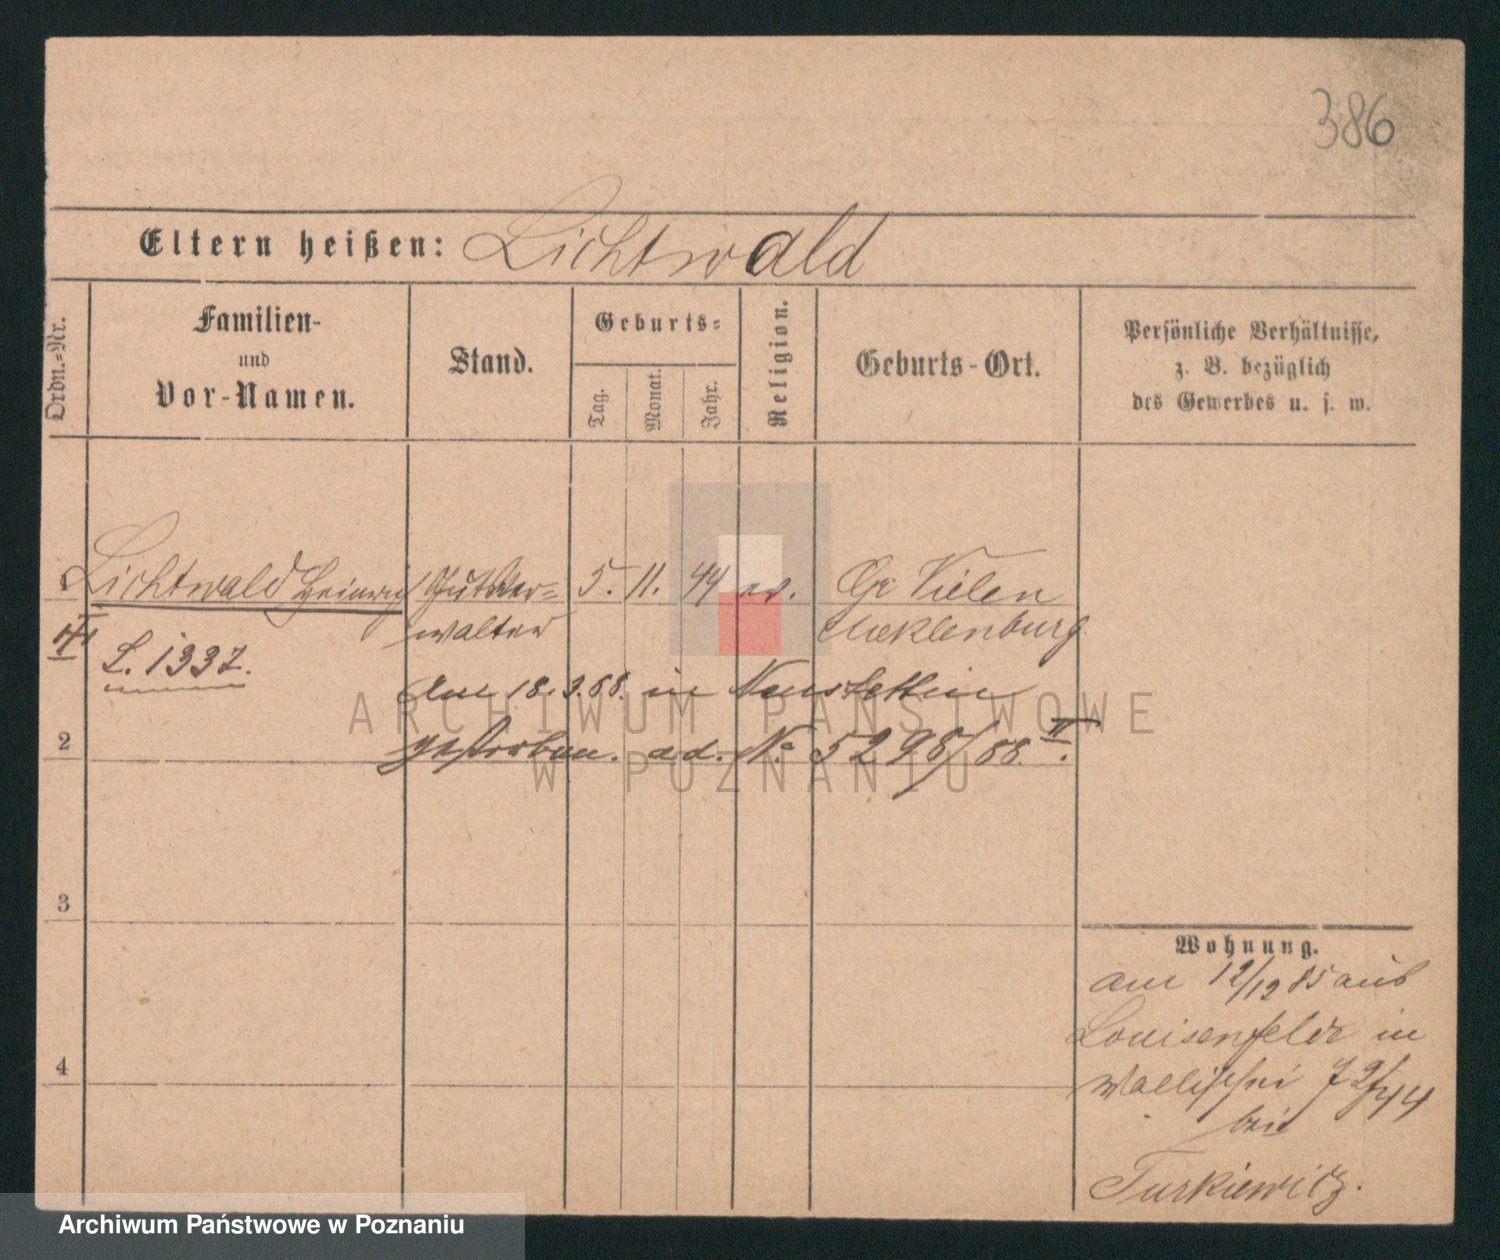 386
Eltern heißen: Lichtwald
Ordn.-Nr.
Familien-
und
Vor-Namen.
Stand.
Geburts-
Tag.
Monat.
Jahr.
Religion.
Geburts-Ort.
Persönliche Verhältnisse,
z. B. bezüglich
des Gewerbes u. s. w.
1 Lichtwald Heinrich Gutsver- 5. 11. 44 ev. Gr Vielen
walter Mecklenburg
L. 1337.
Am 18.3.88. in Neustettin
2 gestorben. ad. No 5298/88 II.
3
4
Wohnung.
am 12/12 85 aus
Louisenfelde in
Wallischei
bei
Turkiewitz.
ARCHIWUM PAŃSTWOWE
W POZNANIU
Archiwum Państwowe w Poznaniu